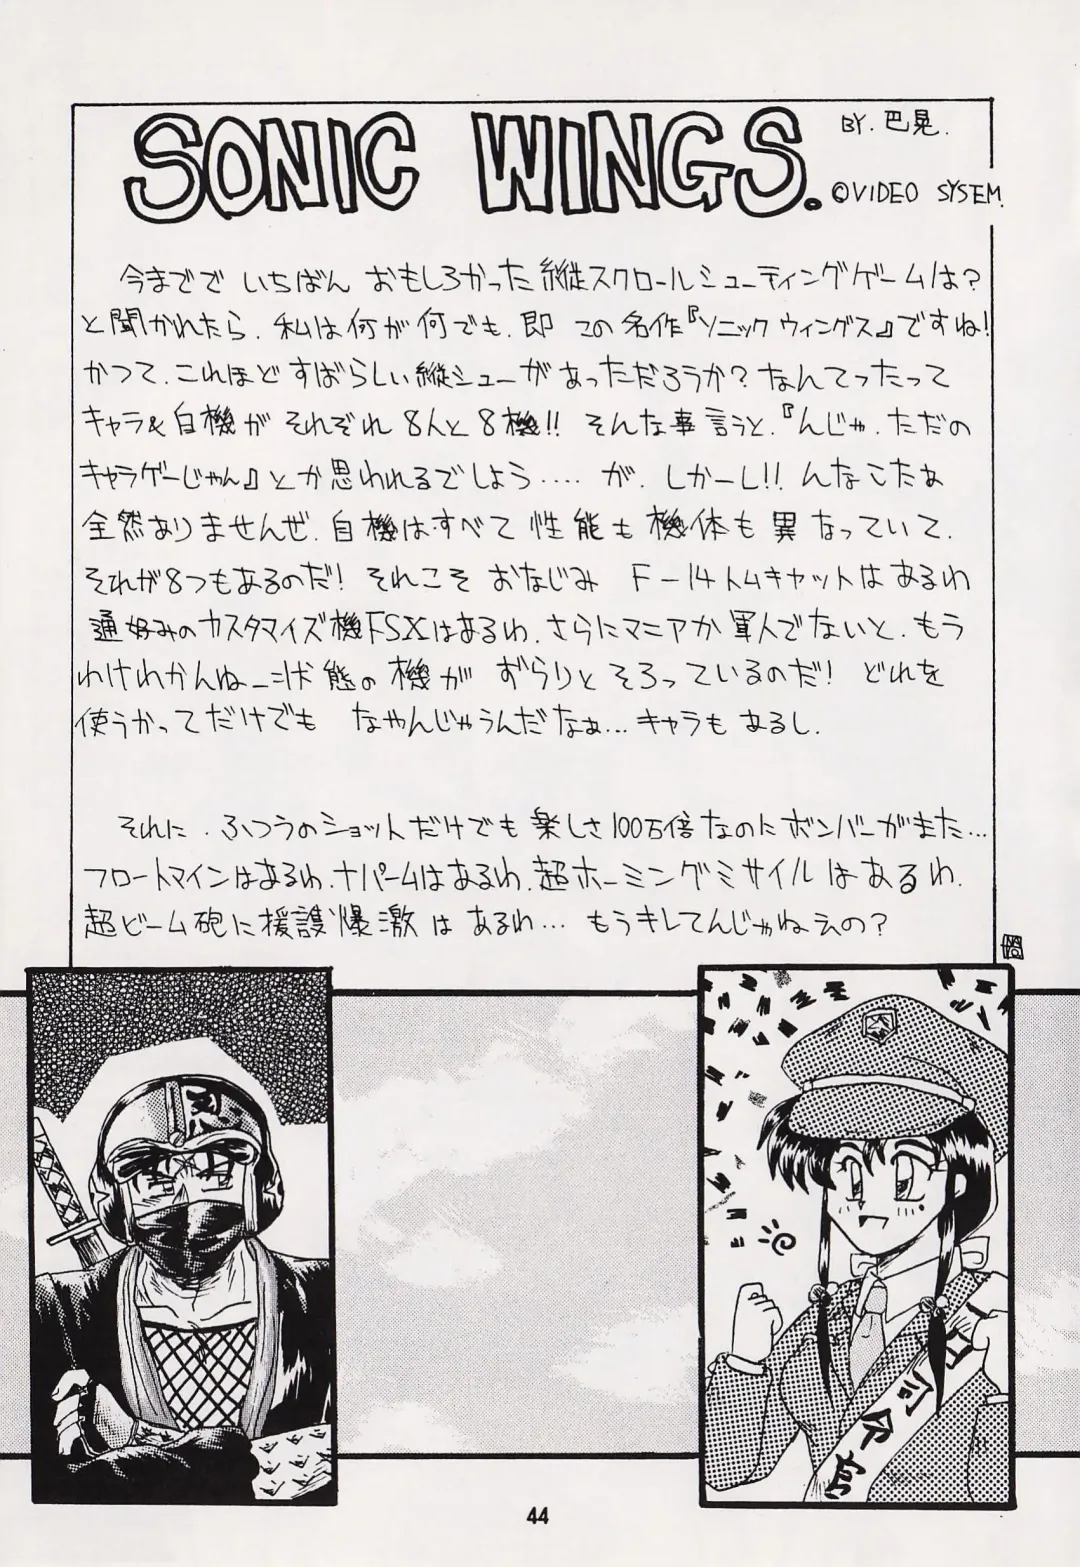 SONIC WINGS.
BY. 巴晃.
©VIDEO SYSEM.
今までで いちばん おもしろかった 縦スクロールシューティングゲームは?
と聞かれたら. 私は何が何でも. 即 この名作『ソニックウィングス』ですね!
かつて. これほどすばらしい縦シューがあっただろうか? なんてったって
キャラ&自機が それぞれ 8人と8機!! そんな事言うと.『んじゃ. ただの
キャラゲーじゃん』とか思われるでしよう…. が. しかーし!! んなこたぁ
全然ありませんぜ. 自機はすべて 性能も機体も異なっていて.
それが8つもあるのだ! それこそ おなじみ F-14トムキャットはあるわ
通好みのカスタマイズ機FSXはあるわ. さらにマニアか軍人でないと. もう
わけわかんねー状態の機が ずらりとそろっているのだ! どれを
使うかってだけでも なやんじゃうんだなぁ… キャラもあるし.
それに. ふつうのショットだけでも楽しさ100万倍なのにボンバーがまた…
フロートマインはあるわ. ナパームはあるわ. 超ホーミングミサイルはあるわ.
超ビーム砲に援護爆激はあるわ… もうキレてんじゃねえの?
忍
司令官
44